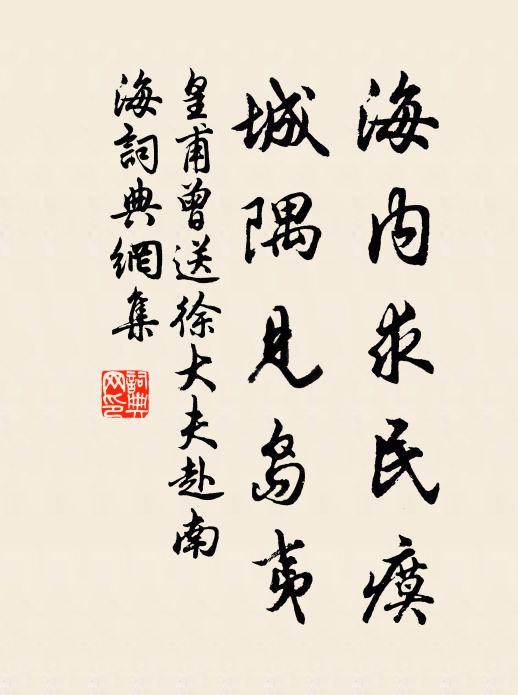 海内求民瘼
城隅見島夷
皇甫曾送徐大夫赴南
海詞典網集
詞典
网印